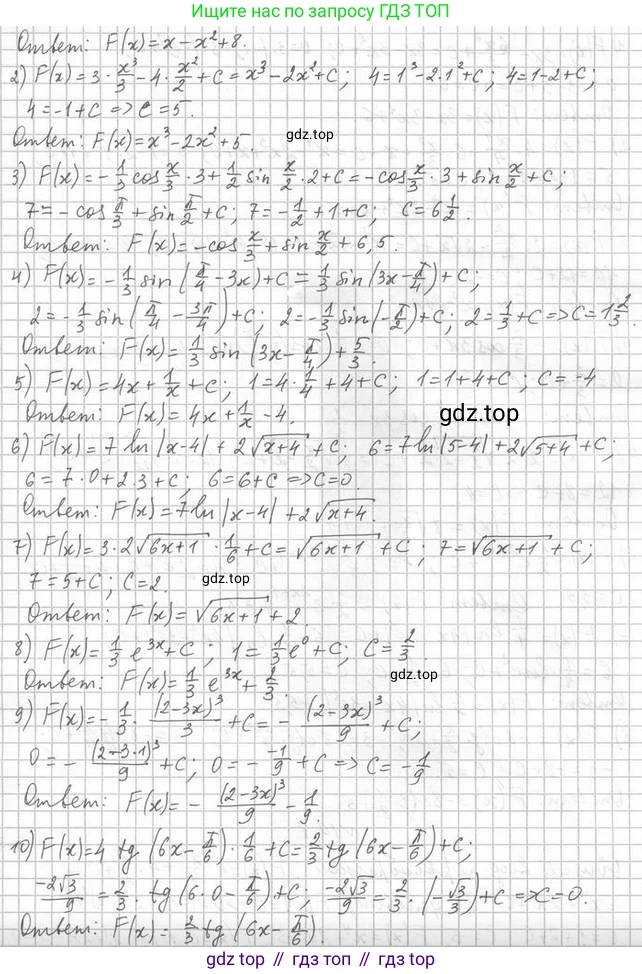 Ищите нас по запросу ГДЗ ТОП
Ответ: F(x) = x - x² + 8.
2) F(x) = 3 · x³/3 - 4 · x²/2 + C = x³ - 2x² + C; 4 = 1³ - 2·1² + C; 4 = 1 - 2 + C;
4 = -1 + C => C = 5.
Ответ: F(x) = x³ - 2x² + 5.
gdz.top
3) F(x) = - 1/3 cos x/3 · 3 + 1/2 sin x/2 · 2 + C = -cos x/3 · 3 + sin x/2 + C;
7 = - cos π/3 + sin π/2 + C; 7 = - 1/2 + 1 + C; C = 6 1/2.
Ответ: F(x) = -cos x/3 + sin x/2 + 6,5.
4) F(x) = - 1/3 sin (π/4 - 3x) + C = 1/3 sin (3x - π/4) + C;
2 = - 1/3 sin (π/4 - 3π/4) + C; 2 = - 1/3 sin (- π/2) + C; 2 = 1/3 + C => C = 1 2/3.
Ответ: F(x) = 1/3 sin (3x - π/4) + 5/3.
5) F(x) = 4x + 1/x + C; 1 = 4 · 1/4 + 4 + C; 1 = 1 + 4 + C; C = -4
Ответ: F(x) = 4x + 1/x - 4.
gdz.top
6) F(x) = 7 ln |x-4| + 2√(x+4) + C; 6 = 7 ln |5-4| + 2√(5+4) + C;
6 = 7 · 0 + 2·3 + C; 6 = 6 + C => C = 0.
Ответ: F(x) = 7 ln |x-4| + 2√(x+4).
7) F(x) = 3 · 2√(6x+1) · 1/6 + C = √(6x+1) + C; 7 = √(6x+1) + C;
7 = 5 + C; C = 2.
gdz.top
Ответ: F(x) = √(6x+1) + 2.
8) F(x) = 1/3 e³ˣ + C; 1 = 1/3 e⁰ + C; C = 2/3.
Ответ: F(x) = 1/3 e³ˣ + 2/3.
gdz.top
9) F(x) = - 1/3 · (2-3x)³/3 + C = - (2-3x)³/9 + C;
0 = - (2-3·1)³/9 + C; 0 = - -1/9 + C => C = - 1/9
Ответ: F(x) = - (2-3x)³/9 - 1/9.
10) F(x) = 4 tg (6x - π/6) · 1/6 + C = 2/3 tg (6x - π/6) + C;
-2√3/9 = 2/3 · tg (6·0 - π/6) + C; -2√3/9 = 2/3 · (- √3/3) + C => C = 0.
Ответ: F(x) = 2/3 tg (6x - π/6).
gdz.top // гдз топ // гдз.топ